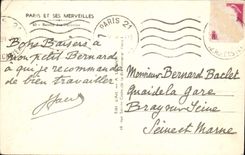 PARIS ET SES MERVEILLES
PARIS 21
Bons Baisers à
mon petit Bernard
à qui je recommande
de bien travailler
Monsieur Bernard Baclet
Quai de la Gare
Bray sur Seine
Seine et Marne